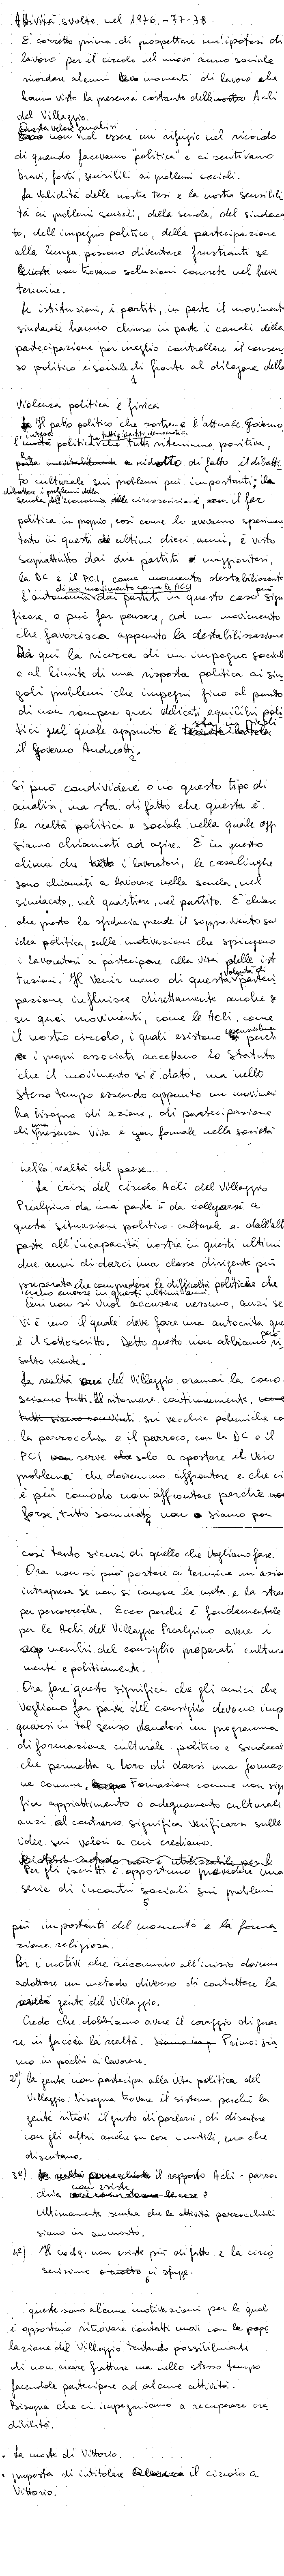 Attività svolte nel 1976 - 77 - 78
E' corretto prima di prospettare un'ipotesi di
lavoro per il circolo nel nuovo anno sociale
ricordare alcuni momenti di lavoro che
hanno visto la presenza costante delle nostre Acli
del Villaggio.
Questa veloce analisi
non vuol essere un rifugio nel ricordo
di quando facevamo "politica" e ci sentivamo
bravi, forti, sensibili ai problemi sociali.
La validità delle nostre tesi e la nostra sensibili
tà ai problemi sociali, della scuola, del sindaca
to, dell'impegno politico, della partecipazione
alla lunga possono diventare frustranti se
non trovano soluzioni concrete nel breve
termine.
Le istituzioni, i partiti, in parte il moviment
sindacale hanno chiuso in parte i canali della
partecipazione per meglio controllare il consen
so politico e sociale di fronte al dilagare della
1
Violenza politica e fisica
Il patto politico che sostiene l'attuale Governo,
l'intesa politica che tutti riteniamo positiva,
ha ridotto di fatto il dibatti
to culturale sui problemi più importanti; il
dibattere i problemi della
scuola, dell'economia, delle circoscrizioni, il far
politica in proprio, così come lo avevamo sperimen
tato in questi ultimi dieci anni, è visto
soprattutto dai due partiti maggioritari,
la DC e il PCI, come momento destabilizzante
di un movimento come le ACLI
L'autonomia dai partiti in questo caso può sign
ficare, o può far pensare, ad un movimento
che favorisca appunto la destabilizzazione
Da qui la ricerca di un impegno social
o al limite di una risposta politica ai sin
goli problemi che impegni fino al punto
di non rompere quei delicati equilibri poli
tici sul quale appunto sta in piedi
il Governo Andreotti.
2
Si può condividere o no questo tipo di
analisi, ma sta di fatto che questa è
la realtà politica e sociale nella quale ogg
siamo chiamati ad agire. E' in questo
clima che i lavoratori, le casalinghe
sono chiamati a lavorare nella scuola, nel
sindacato, nel quartiere, nel partito. E' chiaro
che presto la sfiducia prende il sopravvento su
idea politica, sulle motivazioni che spingono
i lavoratori a partecipare alla vita delle ist
tuzioni. Il venir meno di questa volontà di parteci
pazione influisce direttamente anche
su quei movimenti, come le Acli, come
il nostro circolo, i quali esistono perch
i propri associati accettano lo Statuto
che il movimento si è dato, ma nello
stesso tempo essendo appunto un movimen
ha bisogno di azione, di partecipazione
di una presenza viva e non formale nella società
nella realtà del paese.
La crisi del circolo Acli del Villaggio
Prealpino da una parte è da collegarsi a
questa situazione politico-culturale e dall'alt
parte all'incapacità nostra in questi ultimi
due anni di darci una classe dirigente più
preparata che comprendesse le difficoltà politiche che
erano emerse in questi ultimi anni.
Qui non si vuol accusare nessuno, anzi se
vi è uno il quale deve fare una autocritica que
è il sottoscritto. Detto questo non abbiamo però ri
solto niente.
La realtà del Villaggio oramai la cono
sciamo tutti. Il ritornare continuamente,
tutti siamo convinti sui vecchie polemiche co
la parrocchia o il parroco, con la DC o il
PCI serve solo a spostare il vero
problema che dovremmo affrontare e che ci
è più comodo non affrontare perché
forse, tutto sommato non siamo poi
4
così tanto sicuri di quello che vogliamo fare.
Ora non si può portare a termine un'azio
intrapresa se non si conosce la meta e la strad
per percorrerla. Ecco perché è fondamentale
per le Acli del Villaggio Prealpino avere i
membri del consiglio preparati cultura
mente e politicamente.
Ora fare questo significa che gli amici che
vogliono far parte del consiglio devono imp
gnarsi in tal senso dandosi un programma
di formazione culturale-politico e sindacal
che permetta a loro di darsi una formaz
ne comune. Formazione comune non sign
fica appiattimento o adeguamento culturale
anzi al contrario significa verificarsi sulle
idee sui valori a cui crediamo.
Per gli iscritti è opportuno prevedere una
serie di incontri sociali sui problemi
5
più importanti del momento e la forma
zione religiosa.
Per i motivi che accennavo all'inizio dovremo
adottare un metodo diverso di contattare la
gente del Villaggio.
Credo che dobbiamo avere il coraggio di guar
re in faccia la realtà. Primo: sia
mo in pochi a lavorare.
2°) la gente non partecipa alla vita politica del
Villaggio. bisogna trovare il sistema perché la
gente ritrovi il gusto di parlarsi, di discutere
con gli altri anche su cose inutili, ma che
discutano.
3°) il rapporto Acli - parroc
chia non esiste.
Ultimamente sembra che le attività parrocchiali
siano in aumento.
4°) Il c.d.q. non esiste più di fatto e la circo
scrizione ci sfugge.
6
queste sono alcune motivazioni per le quali
è opportuno ritrovare contatti nuovi con la popo
lazione del Villaggio tentando possibilmente
di non creare fratture ma nello stesso tempo
facendola partecipare ad alcune attività.
Bisogna che ci impegniamo a recuperare cre
dibilità.
• La morte di Vittorio.
• proposta di intitolare il circolo a
Vittorio.